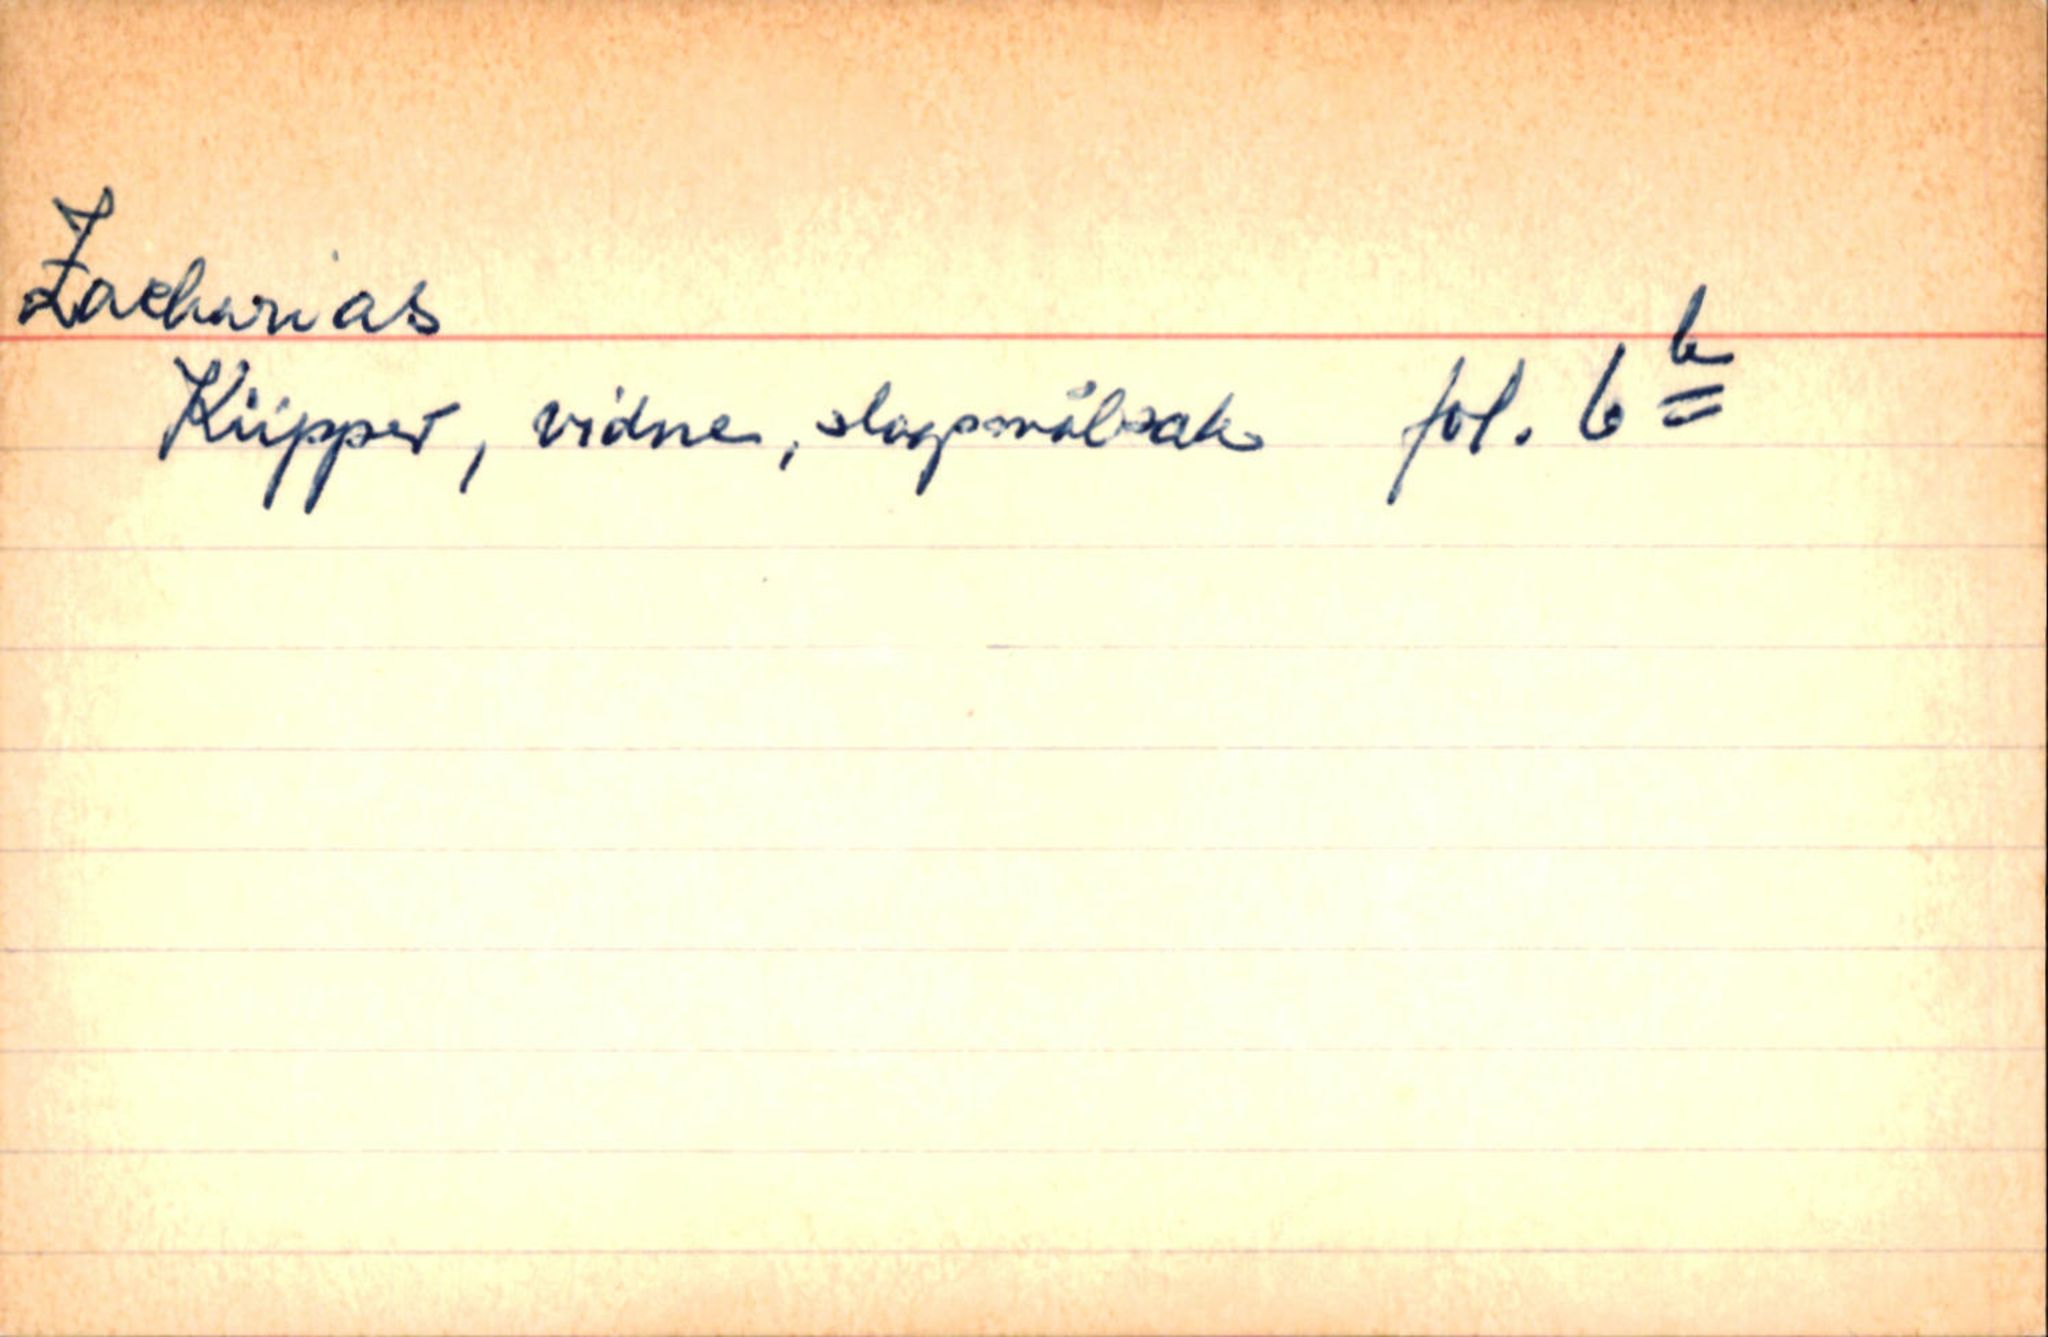 Zacharias
Küpper, vidne, slagsmålsak fol. 6 b